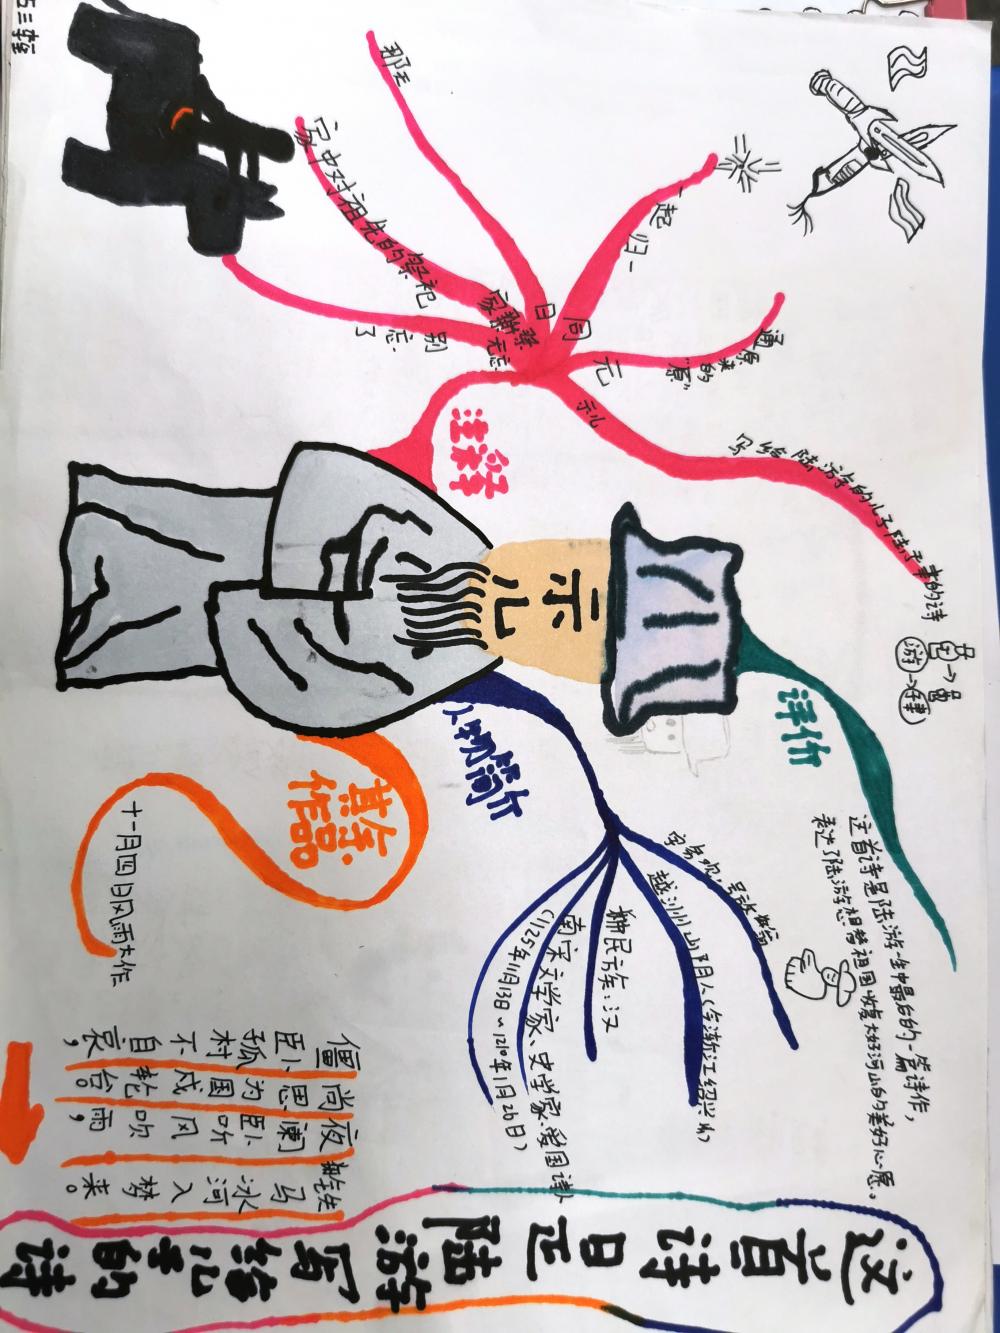 五三班
示儿
注释
示儿
写给陆游的儿子陆子聿的诗
元
通原来的"原"
同
一起归一
但
家中对祖先的祭祀
家祭无忘
别忘了
评价
这首诗是陆游一生中最后的一篇诗作，
表达了陆游想替祖国恢复大好河山的美好心愿。
人物简介
字务观，号放翁
越州山阴人（今浙江绍兴市）
民族：汉
南宋文学家、史学家、爱国诗人
（1125年11月13日～1210年1月26日）
其余作品
十一月四日风雨大作
僵卧孤村不自哀，
尚思为国戍轮台。
夜阑卧听风吹雨，
铁马冰河入梦来。
这首诗是陆游写给儿子的诗